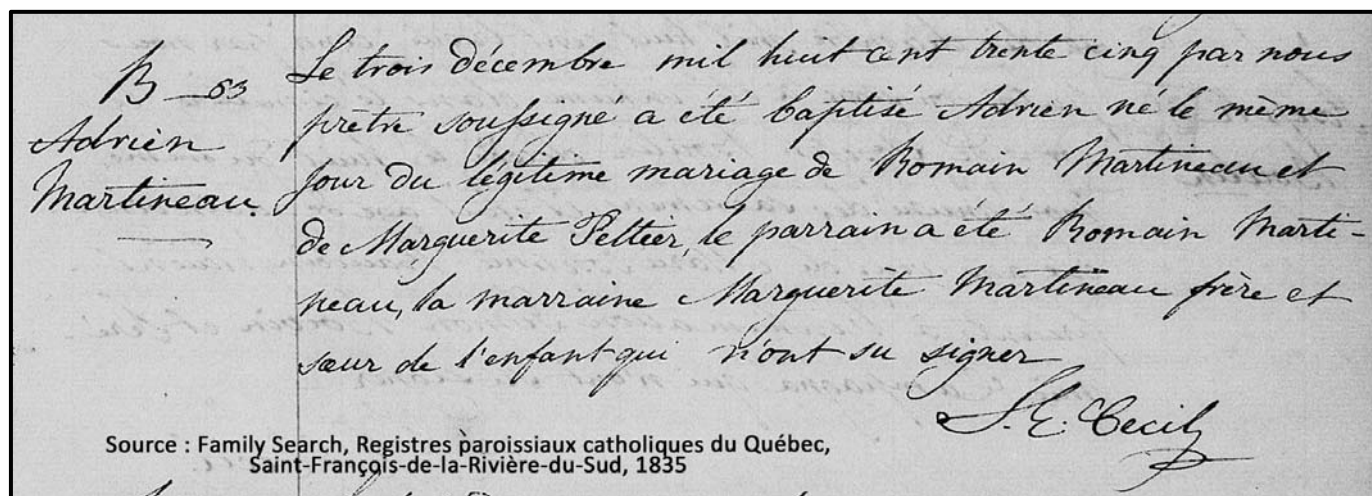 B 83
Adrien
Martineau.
Le trois décembre mil huit cent trente cinq par nous
prêtre soussigné a été baptisé Adrien né le même
jour du légitime mariage de Romain Martineau et
de Marguerite Peltier, le parrain a été Romain Marti-
neau, la marraine Marguerite Martineau frère et
sœur de l'enfant qui n'ont su signer
Cecil
Source : Family Search, Registres paroissiaux catholiques du Québec,
Saint-François-de-la-Rivière-du-Sud, 1835